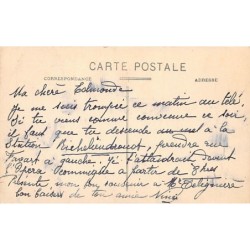 CARTE POSTALE
CORRESPONDANCE ADRESSE
Ma chère Edmonde
Je me suis trompée ce matin au télé
Si tu viens comme convenue ce soir,
il faut que tu descende au à la
Station Richelieu drouot, prendre rue
Favart à gauche. Je t'attendrai devant
l'Opera Comique a partir de 8 hres
mon bon souvenir à Me
bon baisers de ton amie